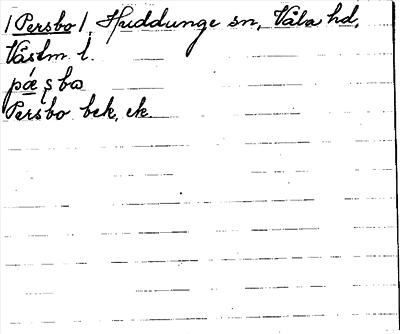 /Persbo/, Huddunge sn, Våla hd,
Västm l.
pæ̨ʂbo
Persbo bek. ek.